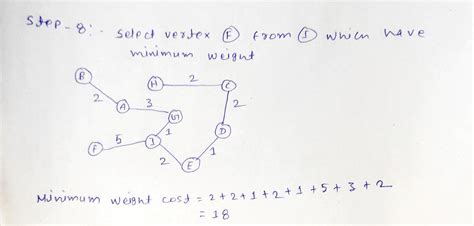 Step-8:- Select vertex F from I which have
minimum weight
B
H 2 C
2
A 3
G
2
5 1
D
F I
2 1
E
Minimum weight cost = 2+2+1+2+1+5+3+2
= 18